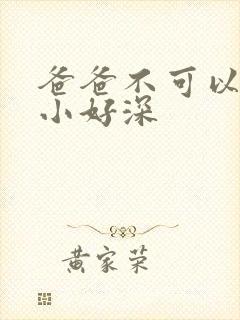 爸爸不可以
小好深
黄家荣